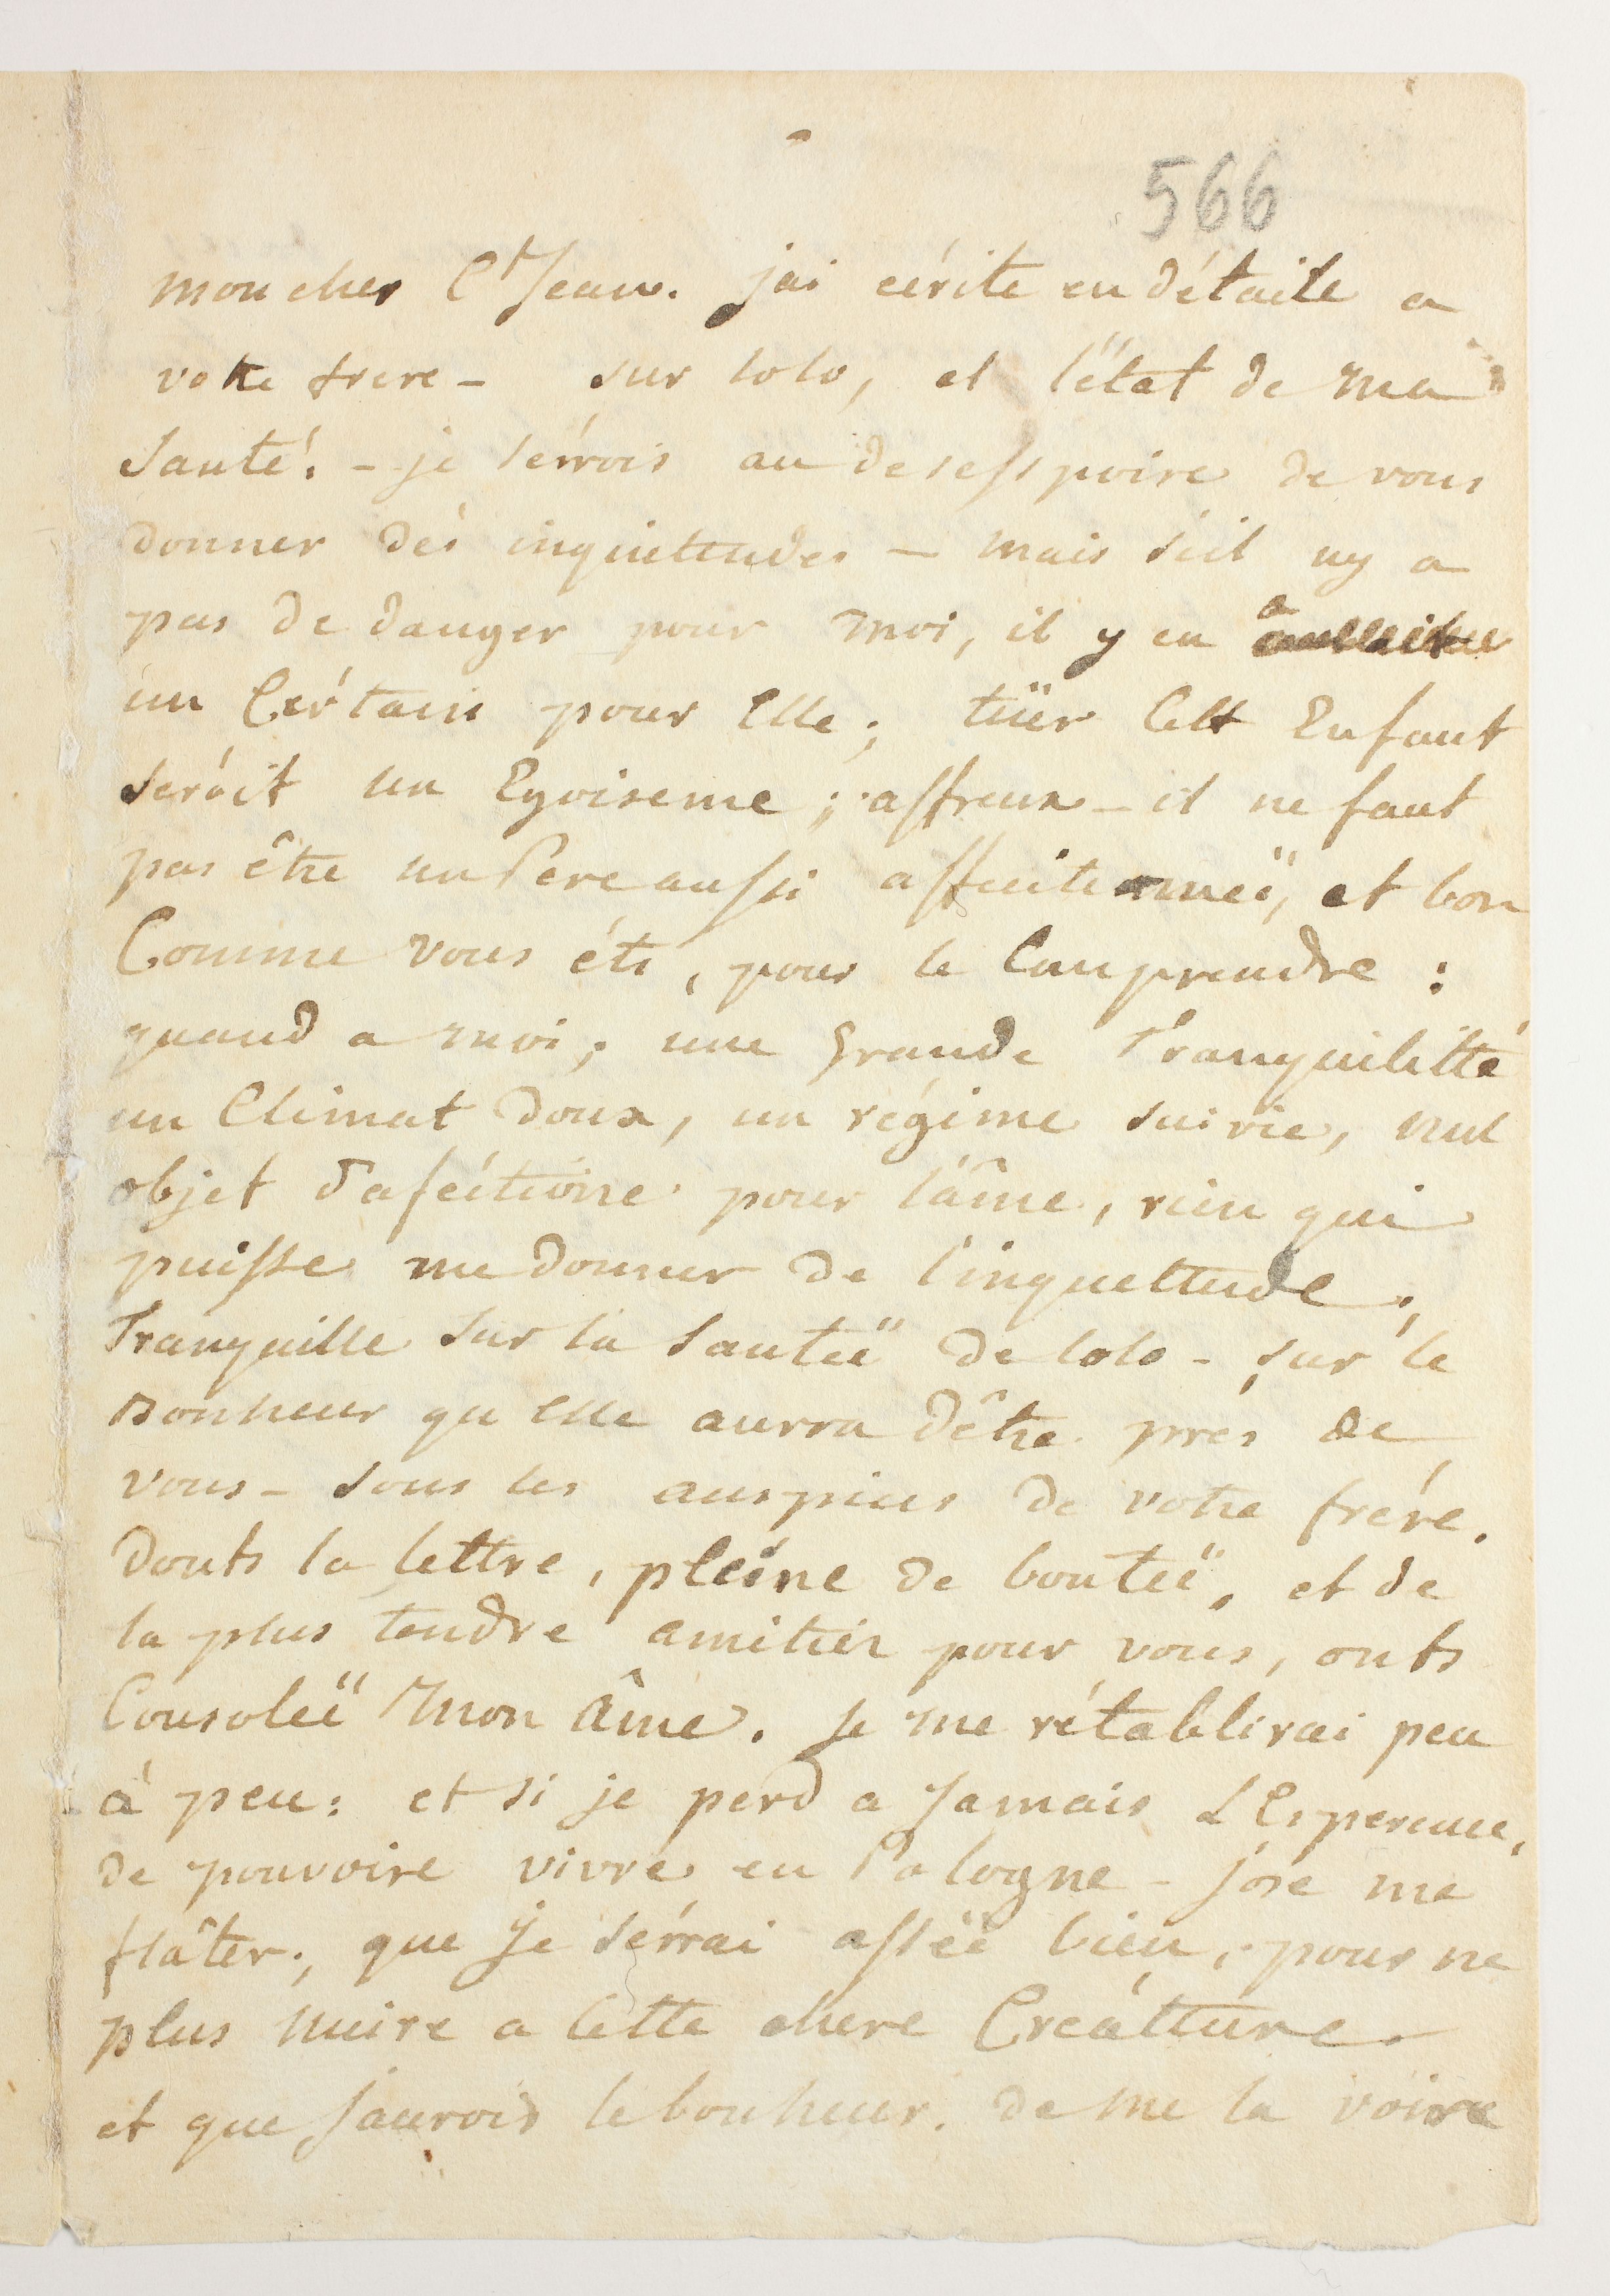 566
mon cher Ct Jean. jai eérite en détaile a
votre frere - sur lolo, et l'état de ma
Santé. - je sérrois au desesspoire de vous
donner dés inquietudes - mais s'il ny a
pas de danger pour moi, il y en a
un Cértain pour Elle; tüer Cett Enfant
seróit un Egoiseme; affreux - il ne faut
pas être un Pere aussi affecitionneë, et bon
Comme vous étes, pour le Comprendre :
quand a moi; une grande Tranquilitté
un Climat doux, un régime suivie, nul
objet d'aféctione pour l'âme, rien qui
puisse me donner de l'inquettude;
Tranquille sur la Santeë de lolo - sur le
Bonheur qu elle aurra d'être près de
vous - sous les auspices de votre frére.
donts la lettre, pleine de bonteë, et de
la plus tendre amitiér pour vous, onts
Consoleë mon âme. Je me rétablirai peu
à peu: et si je perd a Jamais L'Esperence,
de pouvoire vivre en Pologne - J'ose me
flâter, que Je sérrai asseë bien, pour ne
plus nuire a Cette chere Creátture.
et que Jaurois le bonheur. de me la voire